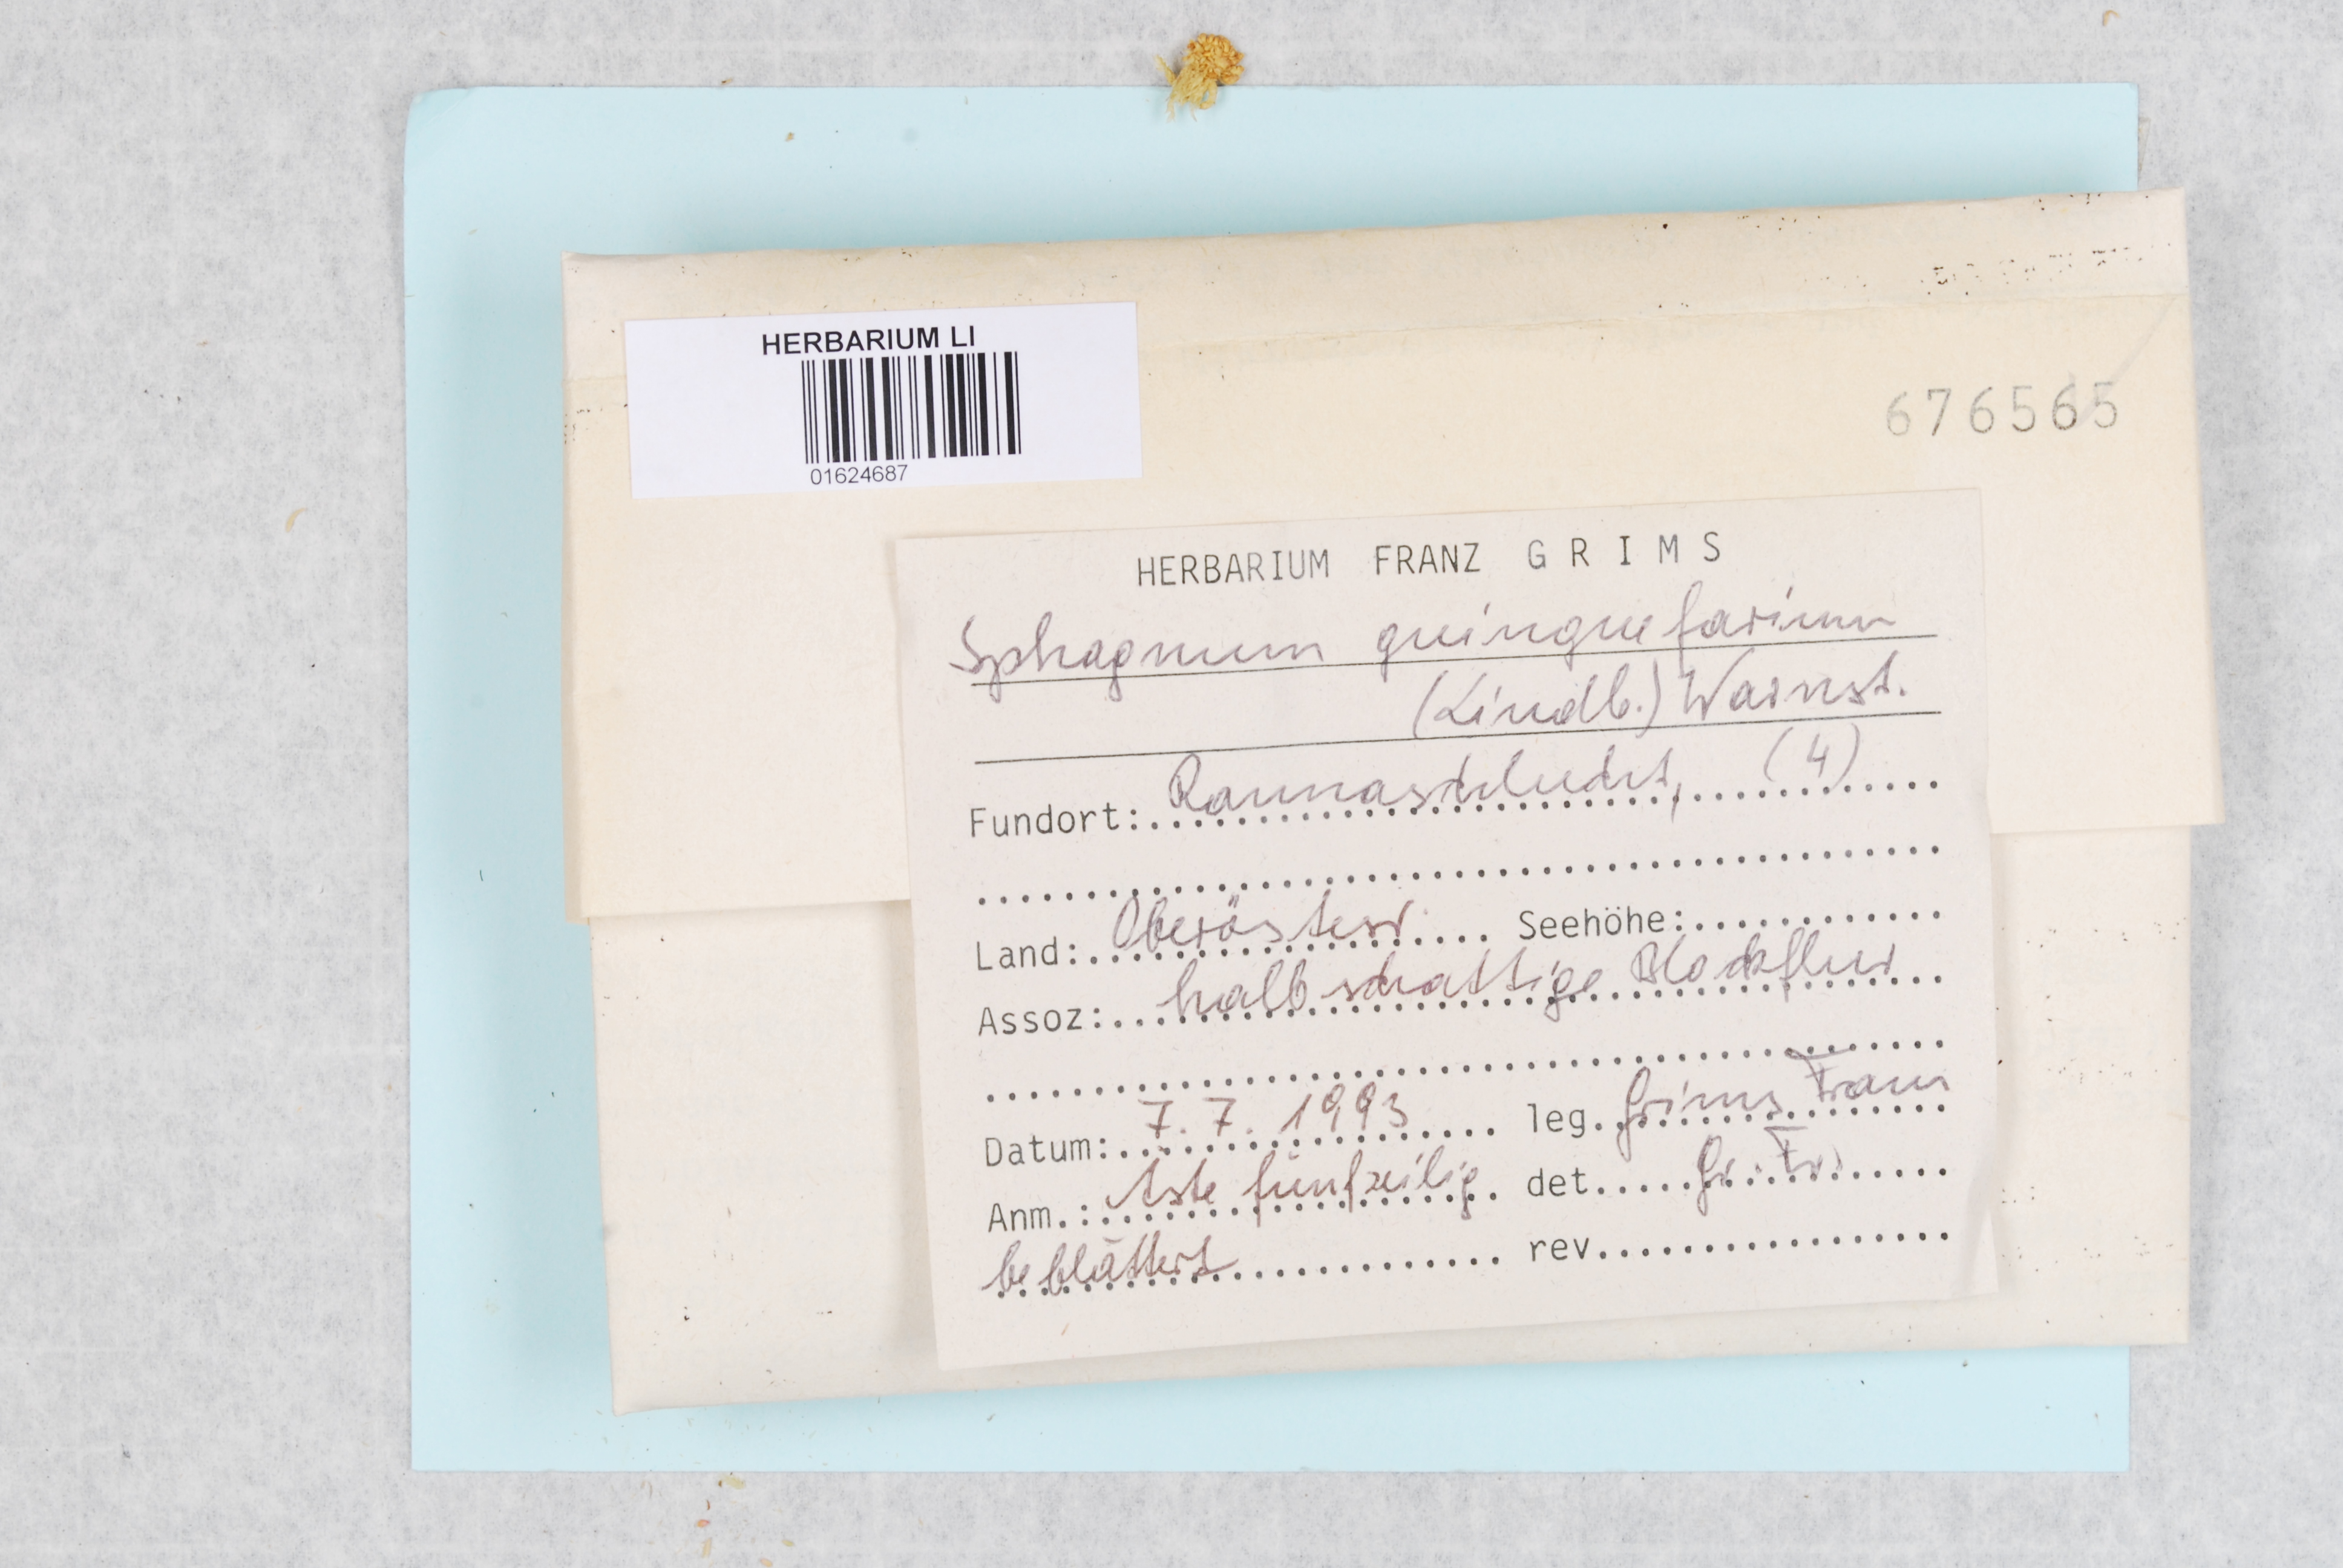 HERBARIUM LI
01624687
676565
HERBARIUM FRANZ GRIMS
Sphagnum quinquefarium
(Lindb.) Warnst.
Fundort: Rannaschlucht, (4)
Land: Oberösterr. Seehöhe:
Assoz: halbschattige Blockflur
Datum: 7. 7. 1993 leg. Grims Franz
Anm.: Äste fünfzeilig det. Gr. Fr.
beblättert rev.